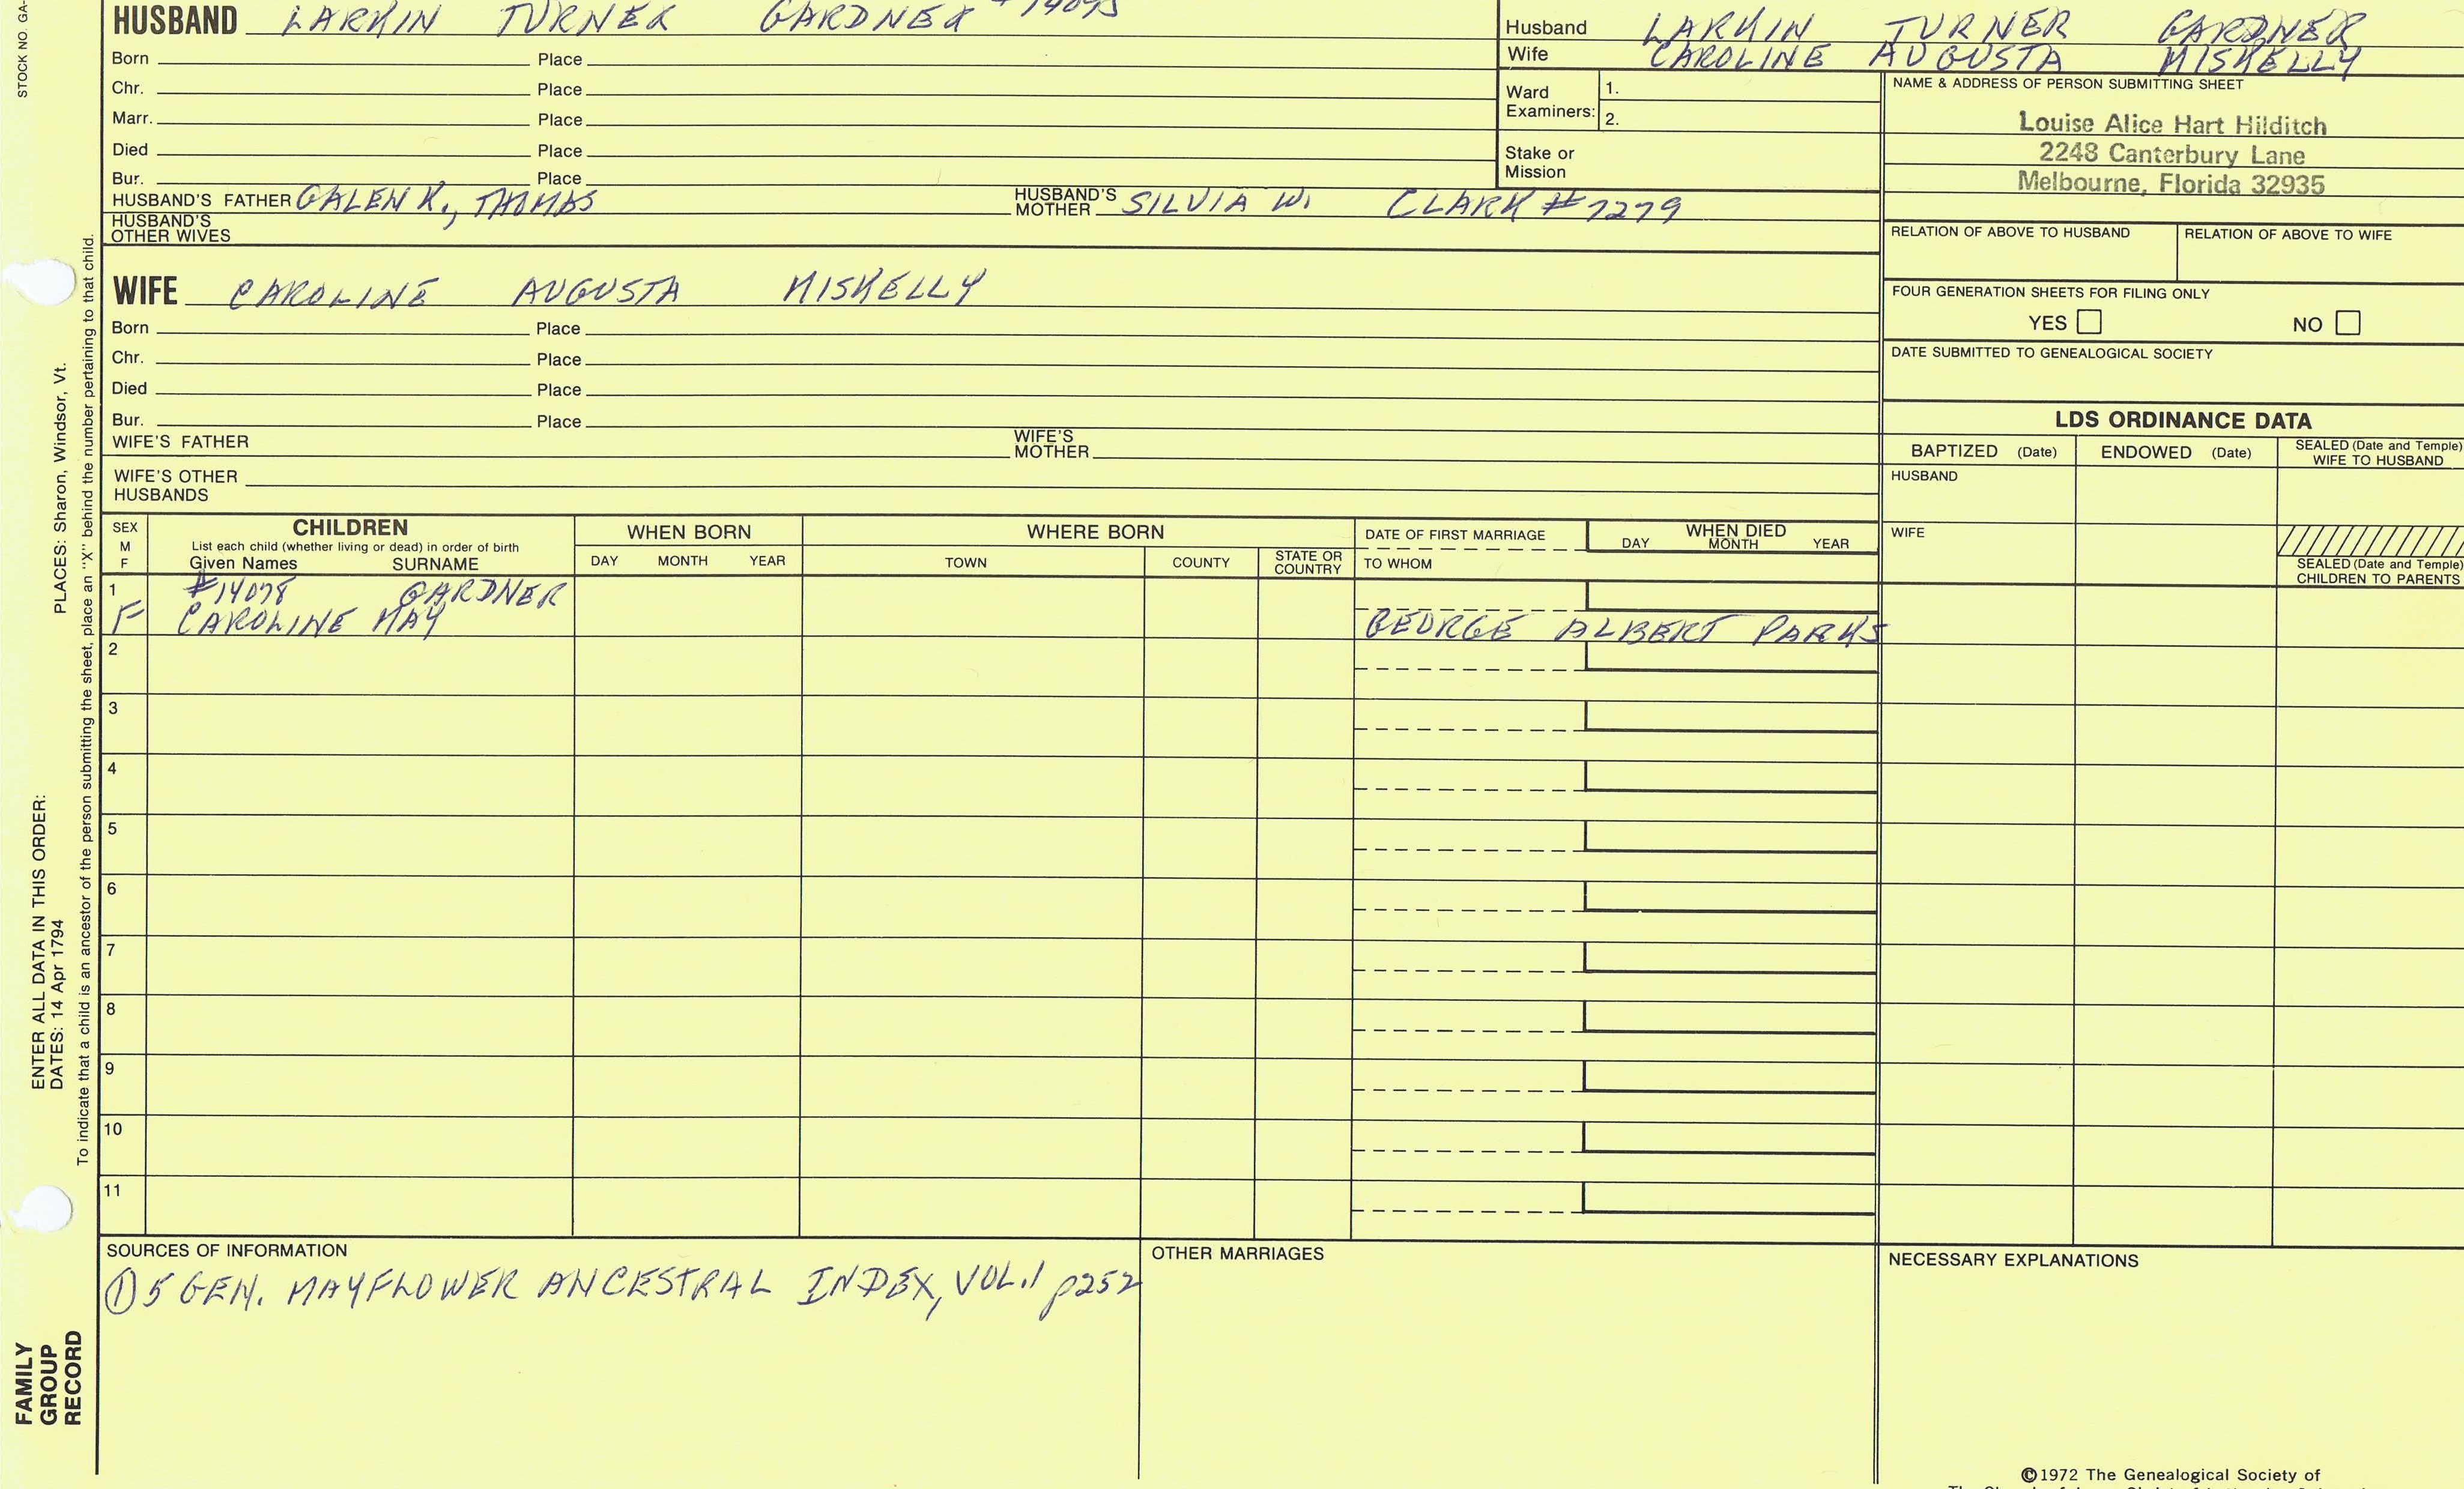 STOCK NO. GA-
HUSBAND LARKIN TURNER GARDNER
Born Place
Chr. Place
Marr. Place
Died Place
Bur. Place
HUSBAND'S FATHER GALEN K., THOMAS HUSBAND'S MOTHER SILVIA W. CLARK #7279
HUSBAND'S OTHER WIVES
Husband LARKIN TURNER GARDNER
Wife CAROLINE AUGUSTA MISKELLY
Ward Examiners: 1.
2.
Stake or Mission
NAME & ADDRESS OF PERSON SUBMITTING SHEET
Louise Alice Hart Hilditch
2248 Canterbury Lane
Melbourne, Florida 32935
RELATION OF ABOVE TO HUSBAND RELATION OF ABOVE TO WIFE
FOUR GENERATION SHEETS FOR FILING ONLY
YES NO
DATE SUBMITTED TO GENEALOGICAL SOCIETY
WIFE CAROLINE AUGUSTA MISKELLY
Born Place
Chr. Place
Died Place
Bur. Place
WIFE'S FATHER WIFE'S MOTHER
WIFE'S OTHER HUSBANDS
LDS ORDINANCE DATA
BAPTIZED (Date) ENDOWED (Date) SEALED (Date and Temple) WIFE TO HUSBAND
HUSBAND
WIFE
SEALED (Date and Temple) CHILDREN TO PARENTS
SEX M F
CHILDREN
List each child (whether living or dead) in order of birth
Given Names SURNAME
WHEN BORN
DAY MONTH YEAR
WHERE BORN
TOWN COUNTY STATE OR COUNTRY
DATE OF FIRST MARRIAGE
TO WHOM
WHEN DIED
DAY MONTH YEAR
1 #14078 GARDNER
F CAROLINE MAY GEORGE ALBERT PARKS
2
3
4
5
6
7
8
9
10
11
SOURCES OF INFORMATION
① 5 GEN. MAYFLOWER ANCESTRAL INDEX, VOL.1 p252
OTHER MARRIAGES
NECESSARY EXPLANATIONS
©1972 The Genealogical Society of
ENTER ALL DATA IN THIS ORDER:
DATES: 14 Apr 1794 PLACES: Sharon, Windsor, Vt.
To indicate that a child is an ancestor of the person submitting the sheet, place an "X" behind the number pertaining to that child.
FAMILY
GROUP
RECORD